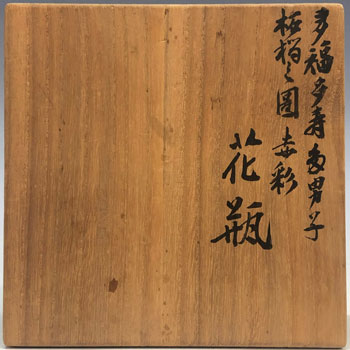 多福多寿多男子
柘榴之圖 赤彩
花瓶